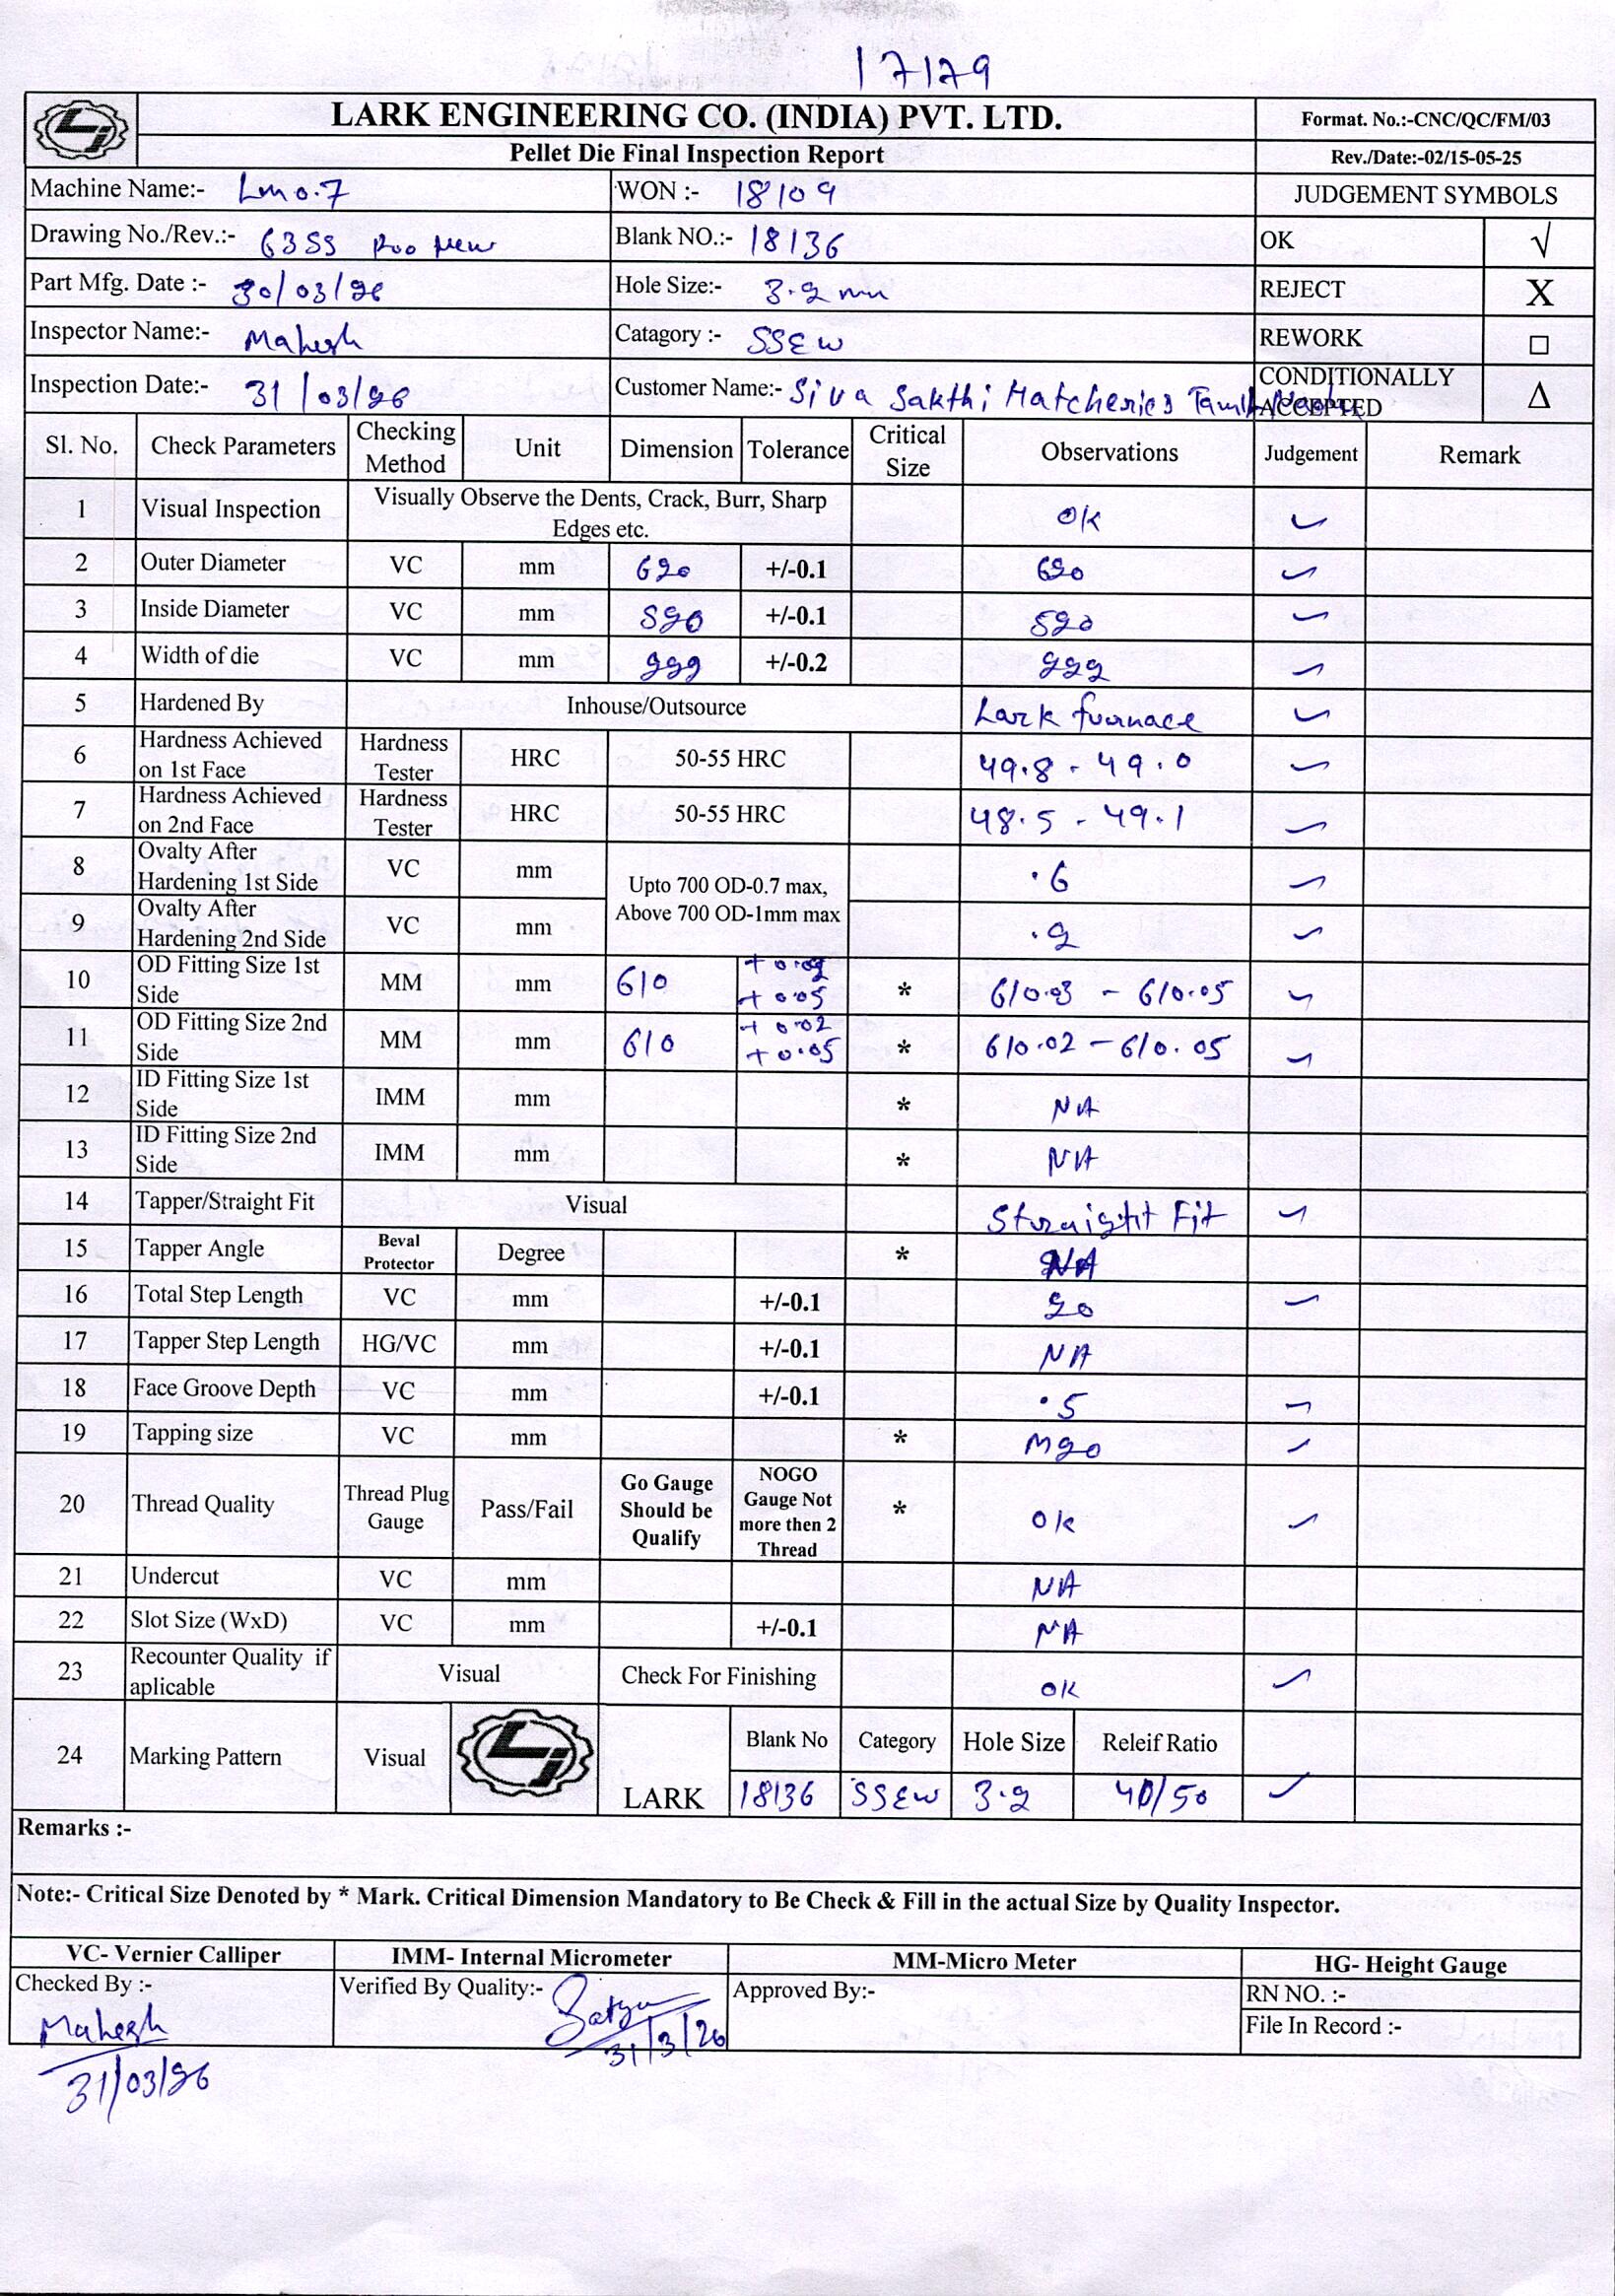 17179
LARK ENGINEERING CO. (INDIA) PVT. LTD.
Format. No.:-CNC/QC/FM/03
Pellet Die Final Inspection Report
Rev./Date:-02/15-05-25
Machine Name:- Lm 0.7 WON :- 18109 JUDGEMENT SYMBOLS
Drawing No./Rev.:- 63SS Roo New Blank NO.:- 18136 OK √
Part Mfg. Date :- 30/03/26 Hole Size:- 3.2 mm REJECT X
Inspector Name:- Mahesh Catagory :- SSEW REWORK □
Inspection Date:- 31/03/26 Customer Name:- Siva Sakthi Hatcheries Tamil CONDITIONALLY ACCEPTED Δ
Sl. No. Check Parameters Checking Method Unit Dimension Tolerance Critical Size Observations Judgement Remark
1 Visual Inspection Visually Observe the Dents, Crack, Burr, Sharp Edges etc. OK ✓
2 Outer Diameter VC mm 620 +/-0.1 620 ✓
3 Inside Diameter VC mm 520 +/-0.1 520 ✓
4 Width of die VC mm 222 +/-0.2 222 ✓
5 Hardened By Inhouse/Outsource Lark furnace ✓
6 Hardness Achieved on 1st Face Hardness Tester HRC 50-55 HRC 49.8 - 49.0 ✓
7 Hardness Achieved on 2nd Face Hardness Tester HRC 50-55 HRC 48.5 - 49.1 ✓
8 Ovalty After Hardening 1st Side VC mm Upto 700 OD-0.7 max, Above 700 OD-1mm max .6 ✓
9 Ovalty After Hardening 2nd Side VC mm .2 ✓
10 OD Fitting Size 1st Side MM mm 610 +0.02 +0.05 * 610.03 - 610.05 ✓
11 OD Fitting Size 2nd Side MM mm 610 +0.02 +0.05 * 610.02 - 610.05 ✓
12 ID Fitting Size 1st Side IMM mm * NA
13 ID Fitting Size 2nd Side IMM mm * NA
14 Tapper/Straight Fit Visual Straight Fit ✓
15 Tapper Angle Beval Protector Degree * NA
16 Total Step Length VC mm +/-0.1 20 ✓
17 Tapper Step Length HG/VC mm +/-0.1 NA
18 Face Groove Depth VC mm +/-0.1 .5 ✓
19 Tapping size VC mm * M20 ✓
20 Thread Quality Thread Plug Gauge Pass/Fail Go Gauge Should be Qualify NOGO Gauge Not more then 2 Thread * Ok ✓
21 Undercut VC mm NA
22 Slot Size (WxD) VC mm +/-0.1 NA
23 Recounter Quality if aplicable Visual Check For Finishing OK ✓
24 Marking Pattern Visual LARK Blank No Category Hole Size Releif Ratio
18136 SSEW 3.2 40/50 ✓
Remarks :-
Note:- Critical Size Denoted by * Mark. Critical Dimension Mandatory to Be Check & Fill in the actual Size by Quality Inspector.
VC- Vernier Calliper IMM- Internal Micrometer MM-Micro Meter HG- Height Gauge
Checked By :- Verified By Quality:- Approved By:- RN NO. :-
Mahesh Satya File In Record :-
31/03/26 31/3/26